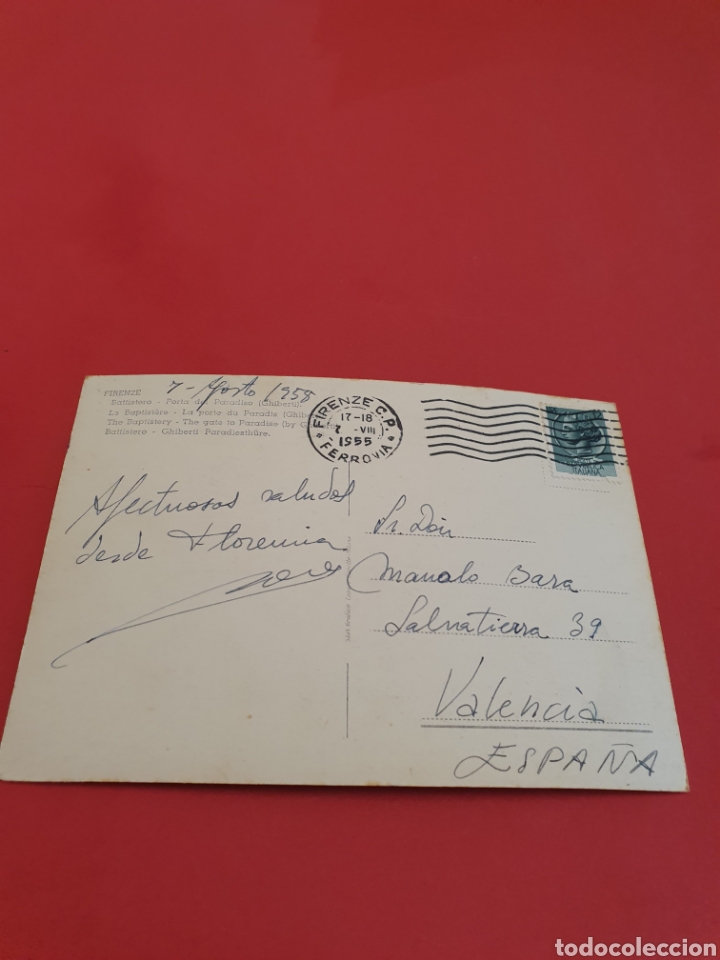 7 - Agosto 1958
FIRENZE
Battistero - Porta del Paradiso (Ghiberti).
La Baptistère - La porte du Paradis (Ghibe
The Baptistery - The gate to Paradise (by G
Battistero - Ghiberti Paradiesthüre.
FIRENZE C.P.
17-18
7 -VIII
1955
FERROVIA
ITALIANA
Afectuosos saludos
desde Florencia
Sr. Don
Manolo Bara
Salvatierra 39
Valencia
ESPAÑA
todocoleccion